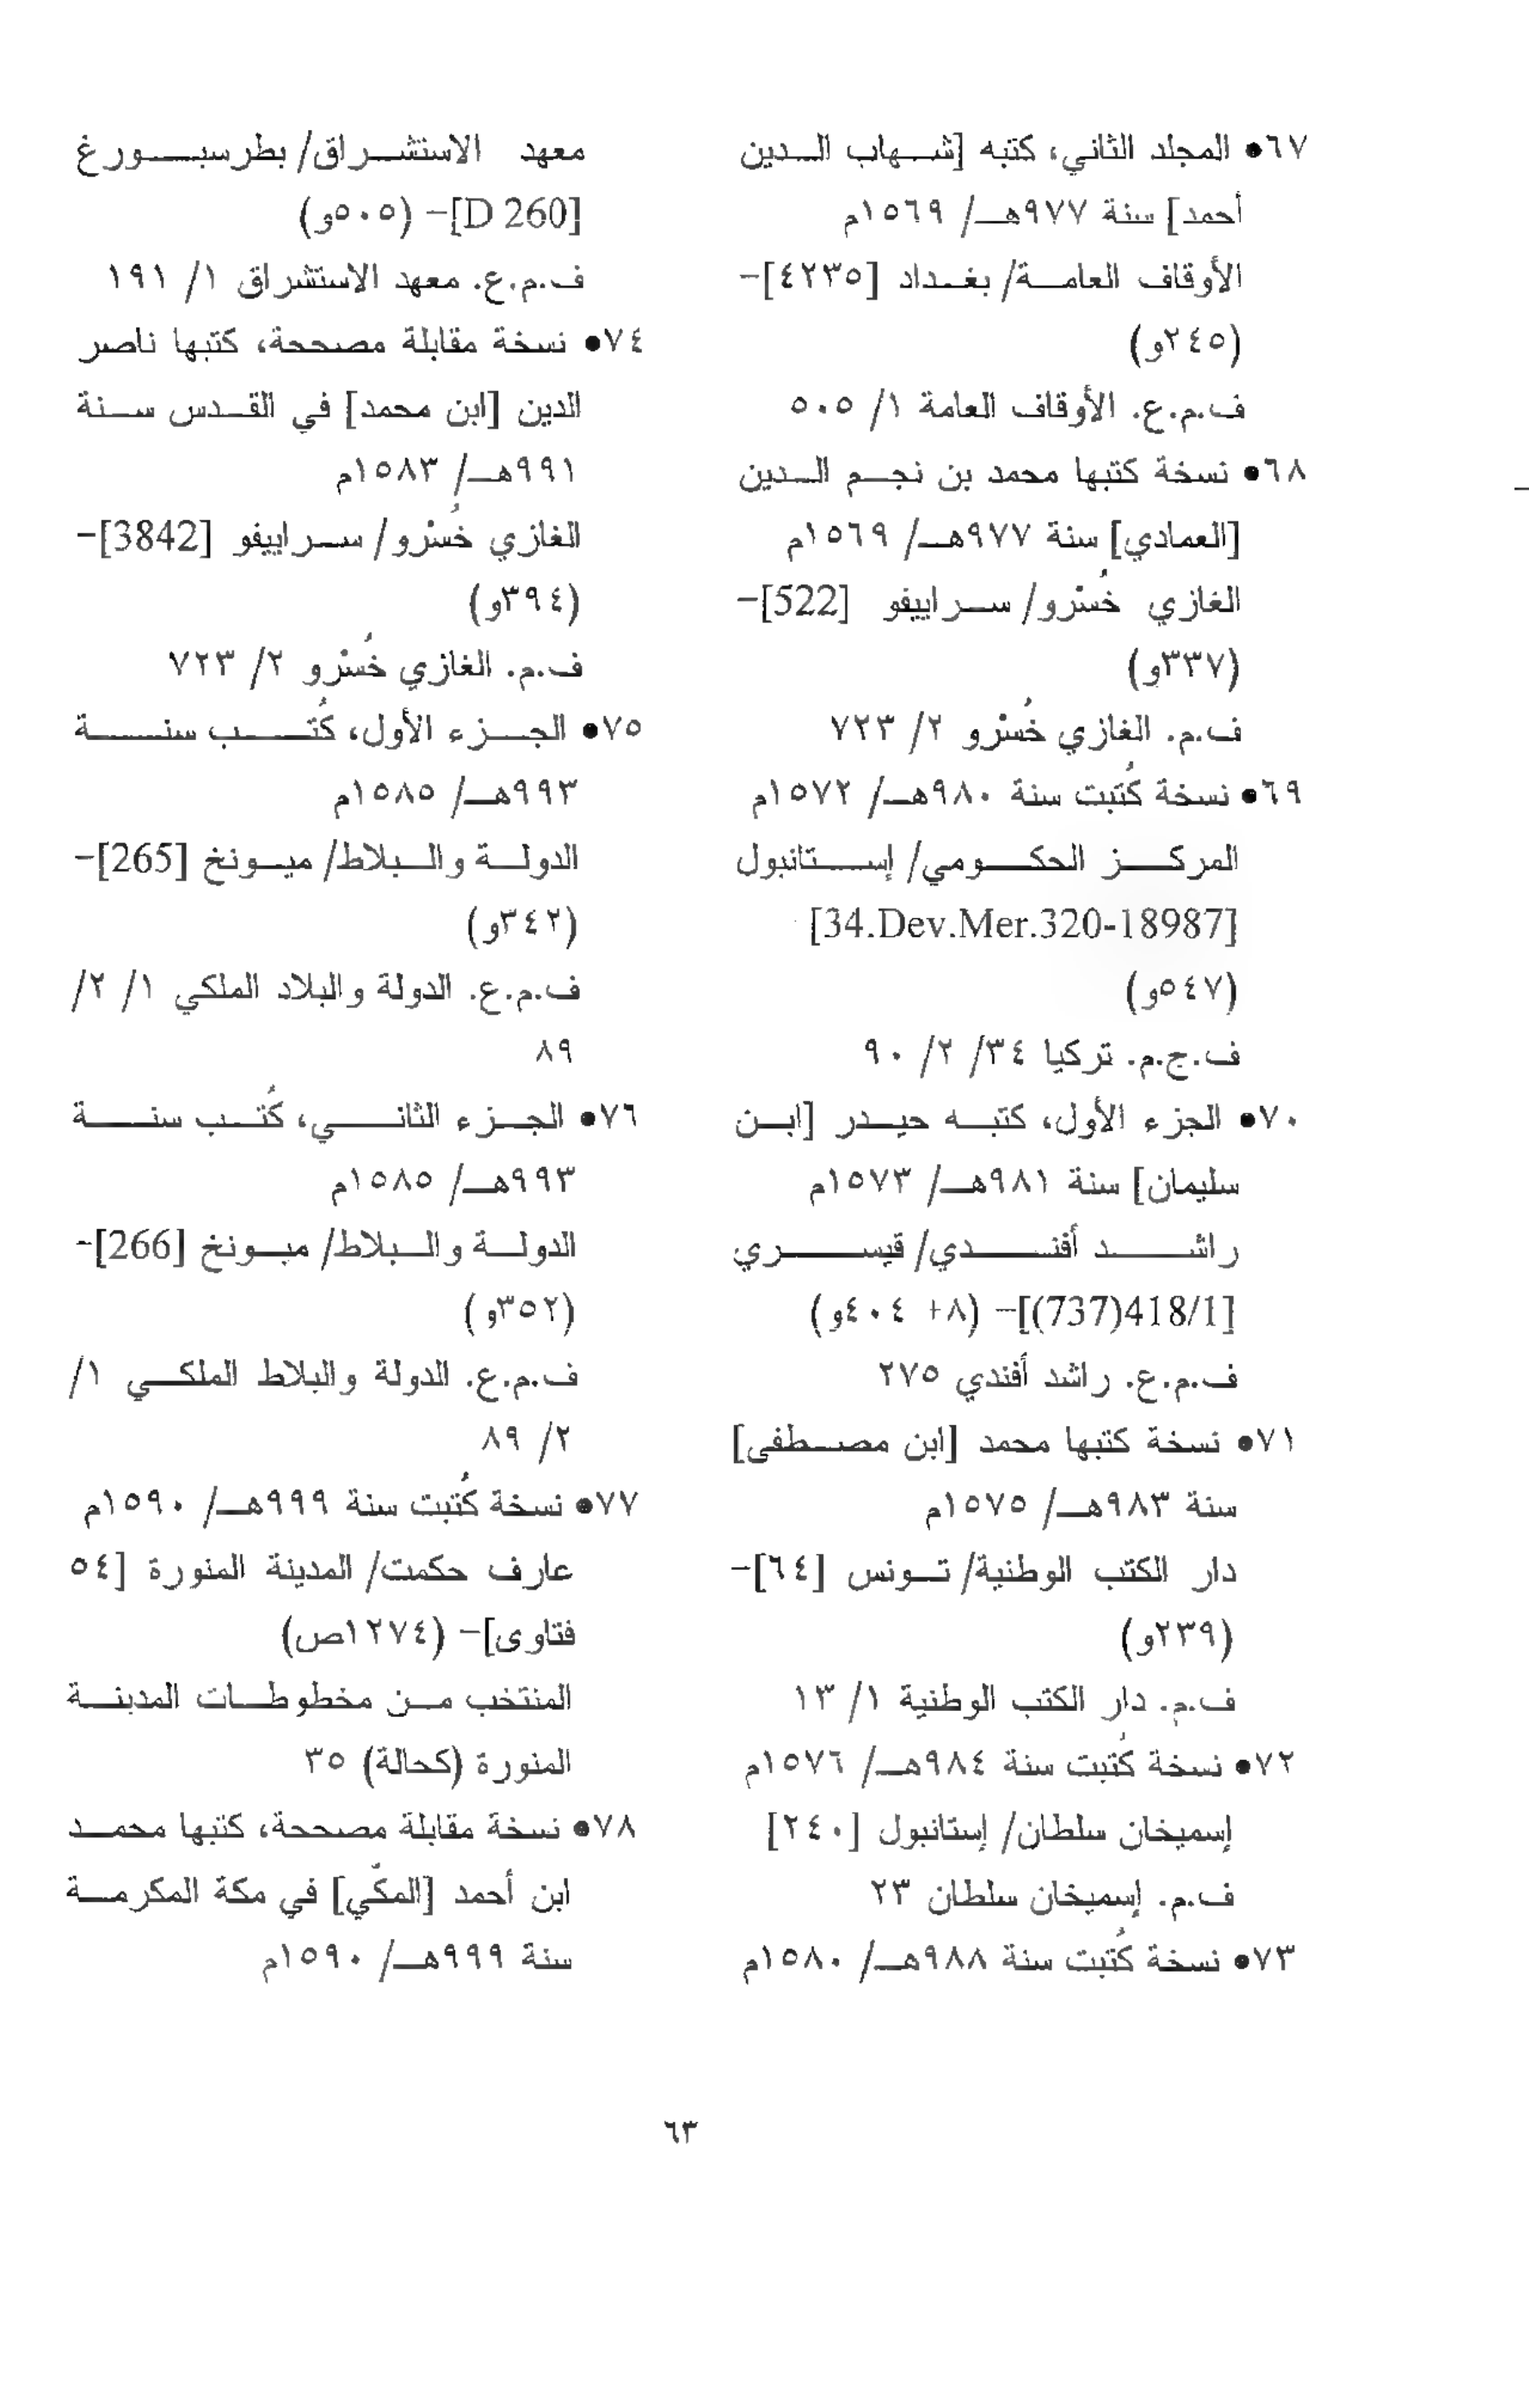 ٦٧• المجلد الثاني، كتبه [شهاب الدين
أحمد] سنة ٩٧٧هـ/ ١٥٦٩م
الأوقاف العامة/ بغداد [٤٢٣٥]-
(٢٤٥و)
ف.م.ع. الأوقاف العامة ١/ ٥٠٥
٦٨• نسخة كتبها محمد بن نجم الدين
[العمادي] سنة ٩٧٧هـ/ ١٥٦٩م
الغازي خُسْرو/ سراييفو [522]-
(٣٣٧و)
ف.م. الغازي خُسْرو ٢/ ٧٢٣
٦٩• نسخة كُتبت سنة ٩٨٠هـ/ ١٥٧٢م
المركز الحكومي/ إستانبول
[34.Dev.Mer.320-18987]
(٥٤٧و)
ف.ج.م. تركيا ٣٤/ ٢/ ٩٠
٧٠• الجزء الأول، كتبه حيدر [ابن
سليمان] سنة ٩٨١هـ/ ١٥٧٣م
راشد أفندي/ قيسري
[418/1(737)]- (٨+ ٤٠٤و)
ف.م.ع. راشد أفندي ٢٧٥
٧١• نسخة كتبها محمد [ابن مصطفى]
سنة ٩٨٣هـ/ ١٥٧٥م
دار الكتب الوطنية/ تونس [٦٤]-
(٢٣٩و)
ف.م. دار الكتب الوطنية ١/ ١٣
٧٢• نسخة كُتبت سنة ٩٨٤هـ/ ١٥٧٦م
إسميخان سلطان/ إستانبول [٢٤٠]
ف.م. إسميخان سلطان ٢٣
٧٣• نسخة كُتبت سنة ٩٨٨هـ/ ١٥٨٠م
معهد الاستشراق/ بطرسبورغ
[D 260]- (٥٠٥و)
ف.م.ع. معهد الاستشراق ١/ ١٩١
٧٤• نسخة مقابلة مصححة، كتبها ناصر
الدين [ابن محمد] في القدس سنة
٩٩١هـ/ ١٥٨٣م
الغازي خُسْرو/ سراييفو [3842]-
(٣٩٤و)
ف.م. الغازي خُسْرو ٢/ ٧٢٣
٧٥• الجزء الأول، كُتب سنة
٩٩٣هـ/ ١٥٨٥م
الدولة والبلاط/ ميونخ [265]-
(٣٤٢و)
ف.م.ع. الدولة والبلاد الملكي ١/ ٢/
٨٩
٧٦• الجزء الثاني، كُتب سنة
٩٩٣هـ/ ١٥٨٥م
الدولة والبلاط/ ميونخ [266]-
(٣٥٢و)
ف.م.ع. الدولة والبلاط الملكي ١/
٢/ ٨٩
٧٧• نسخة كُتبت سنة ٩٩٩هـ/ ١٥٩٠م
عارف حكمت/ المدينة المنورة [٥٤
فتاوى]- (١٢٧٤ص)
المنتخب من مخطوطات المدينة
المنورة (كحالة) ٣٥
٧٨• نسخة مقابلة مصححة، كتبها محمد
ابن أحمد [المكّي] في مكة المكرمة
سنة ٩٩٩هـ/ ١٥٩٠م
٦٣